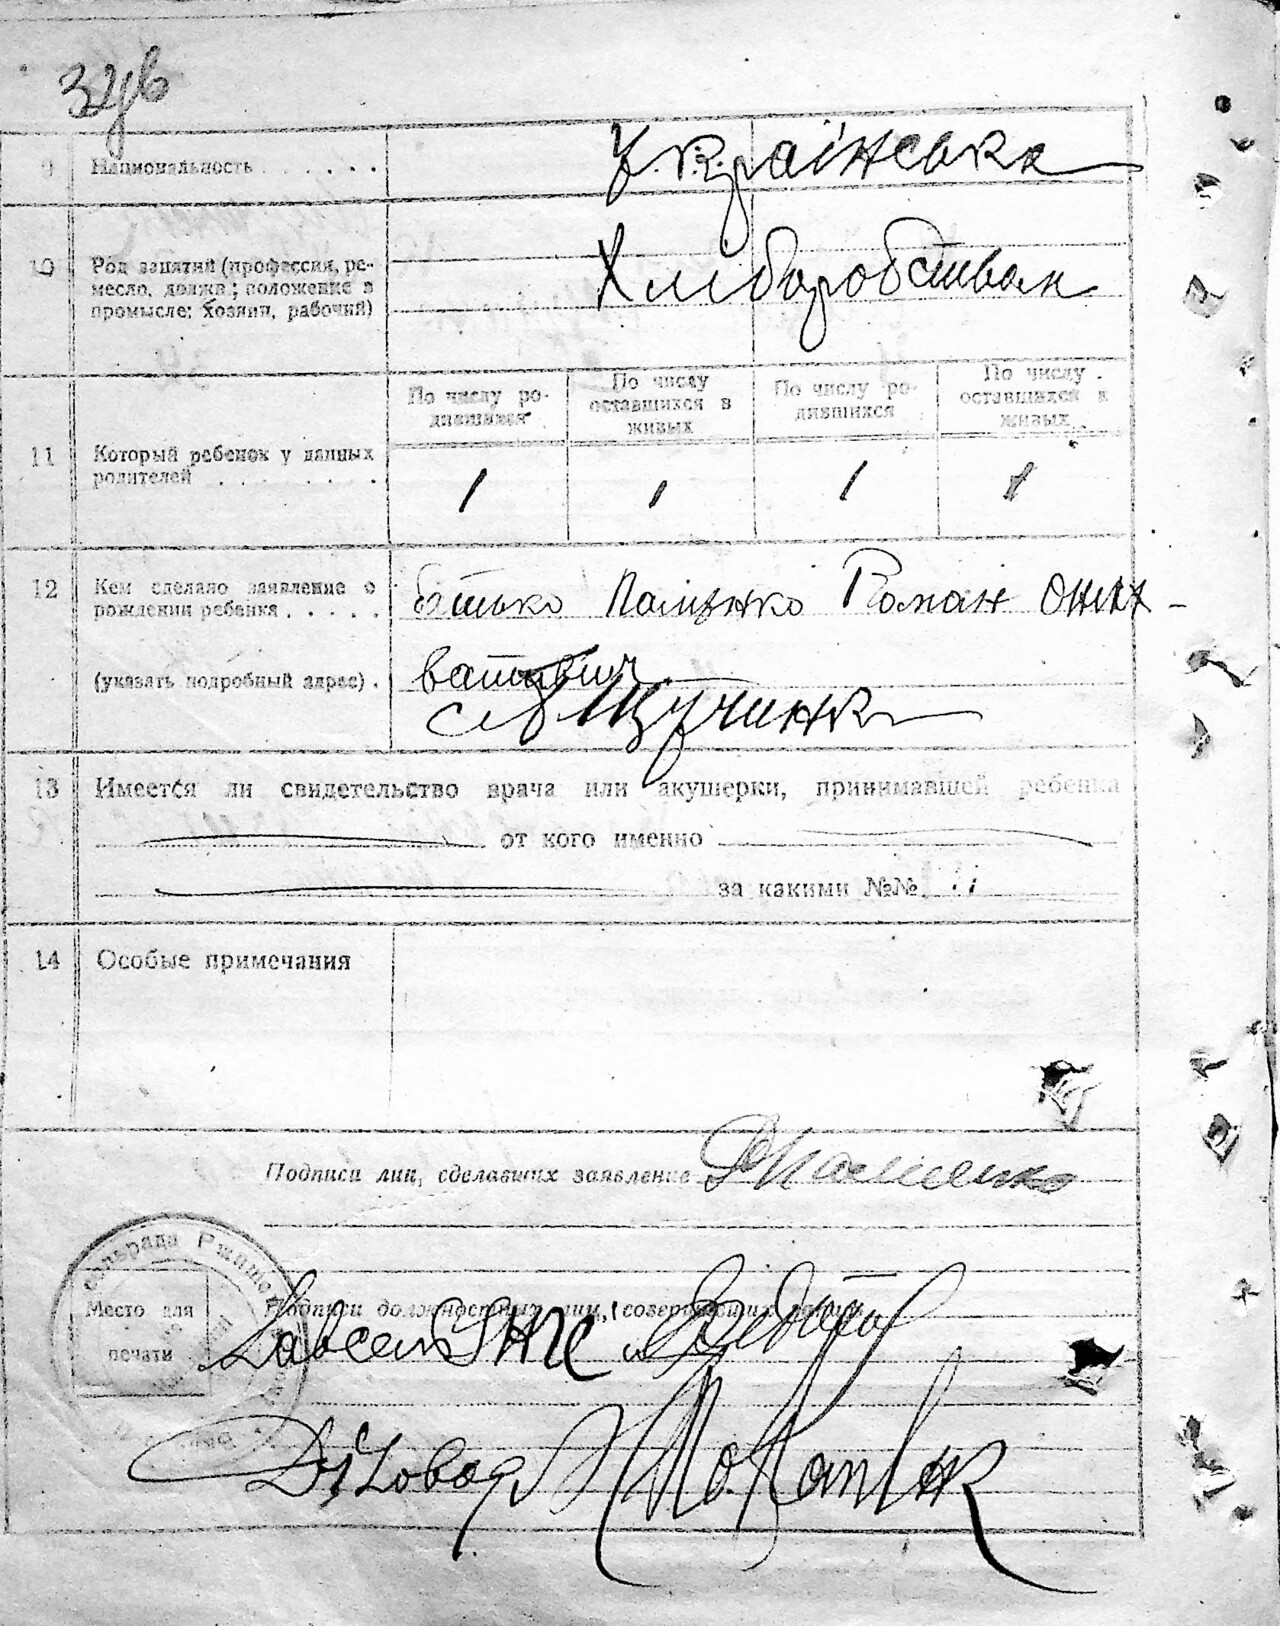 32зв
9 Национальность . . . . . .
Українська
10 Род занятий (профессия, ре-
месло, должн; положение в
промысле: хозяин, рабочий)
Хліборобством
По числу ро-
дившихся
По числу
оставшихся в
живых
По числу ро-
дившихся
По числу
оставшихся в
живых
11 Который ребенок у данных
родителей . . . . . . .
1 1 1 1
12 Кем сделано заявление о
рождении ребенка . . . . .
батько Роман
(указать подробный адрес) .
с. Щучинка
13 Имеется ли свидетельство врача или акушерки, принимавшей ребенка
от кого именно
за какими №№
14 Особые примечания
Подписи лиц, сделавших заявление
сільрада Ржищев
Место для
печати
Подписи должностных лиц, совершивших запись
Завсель ЗАГС
Діловод